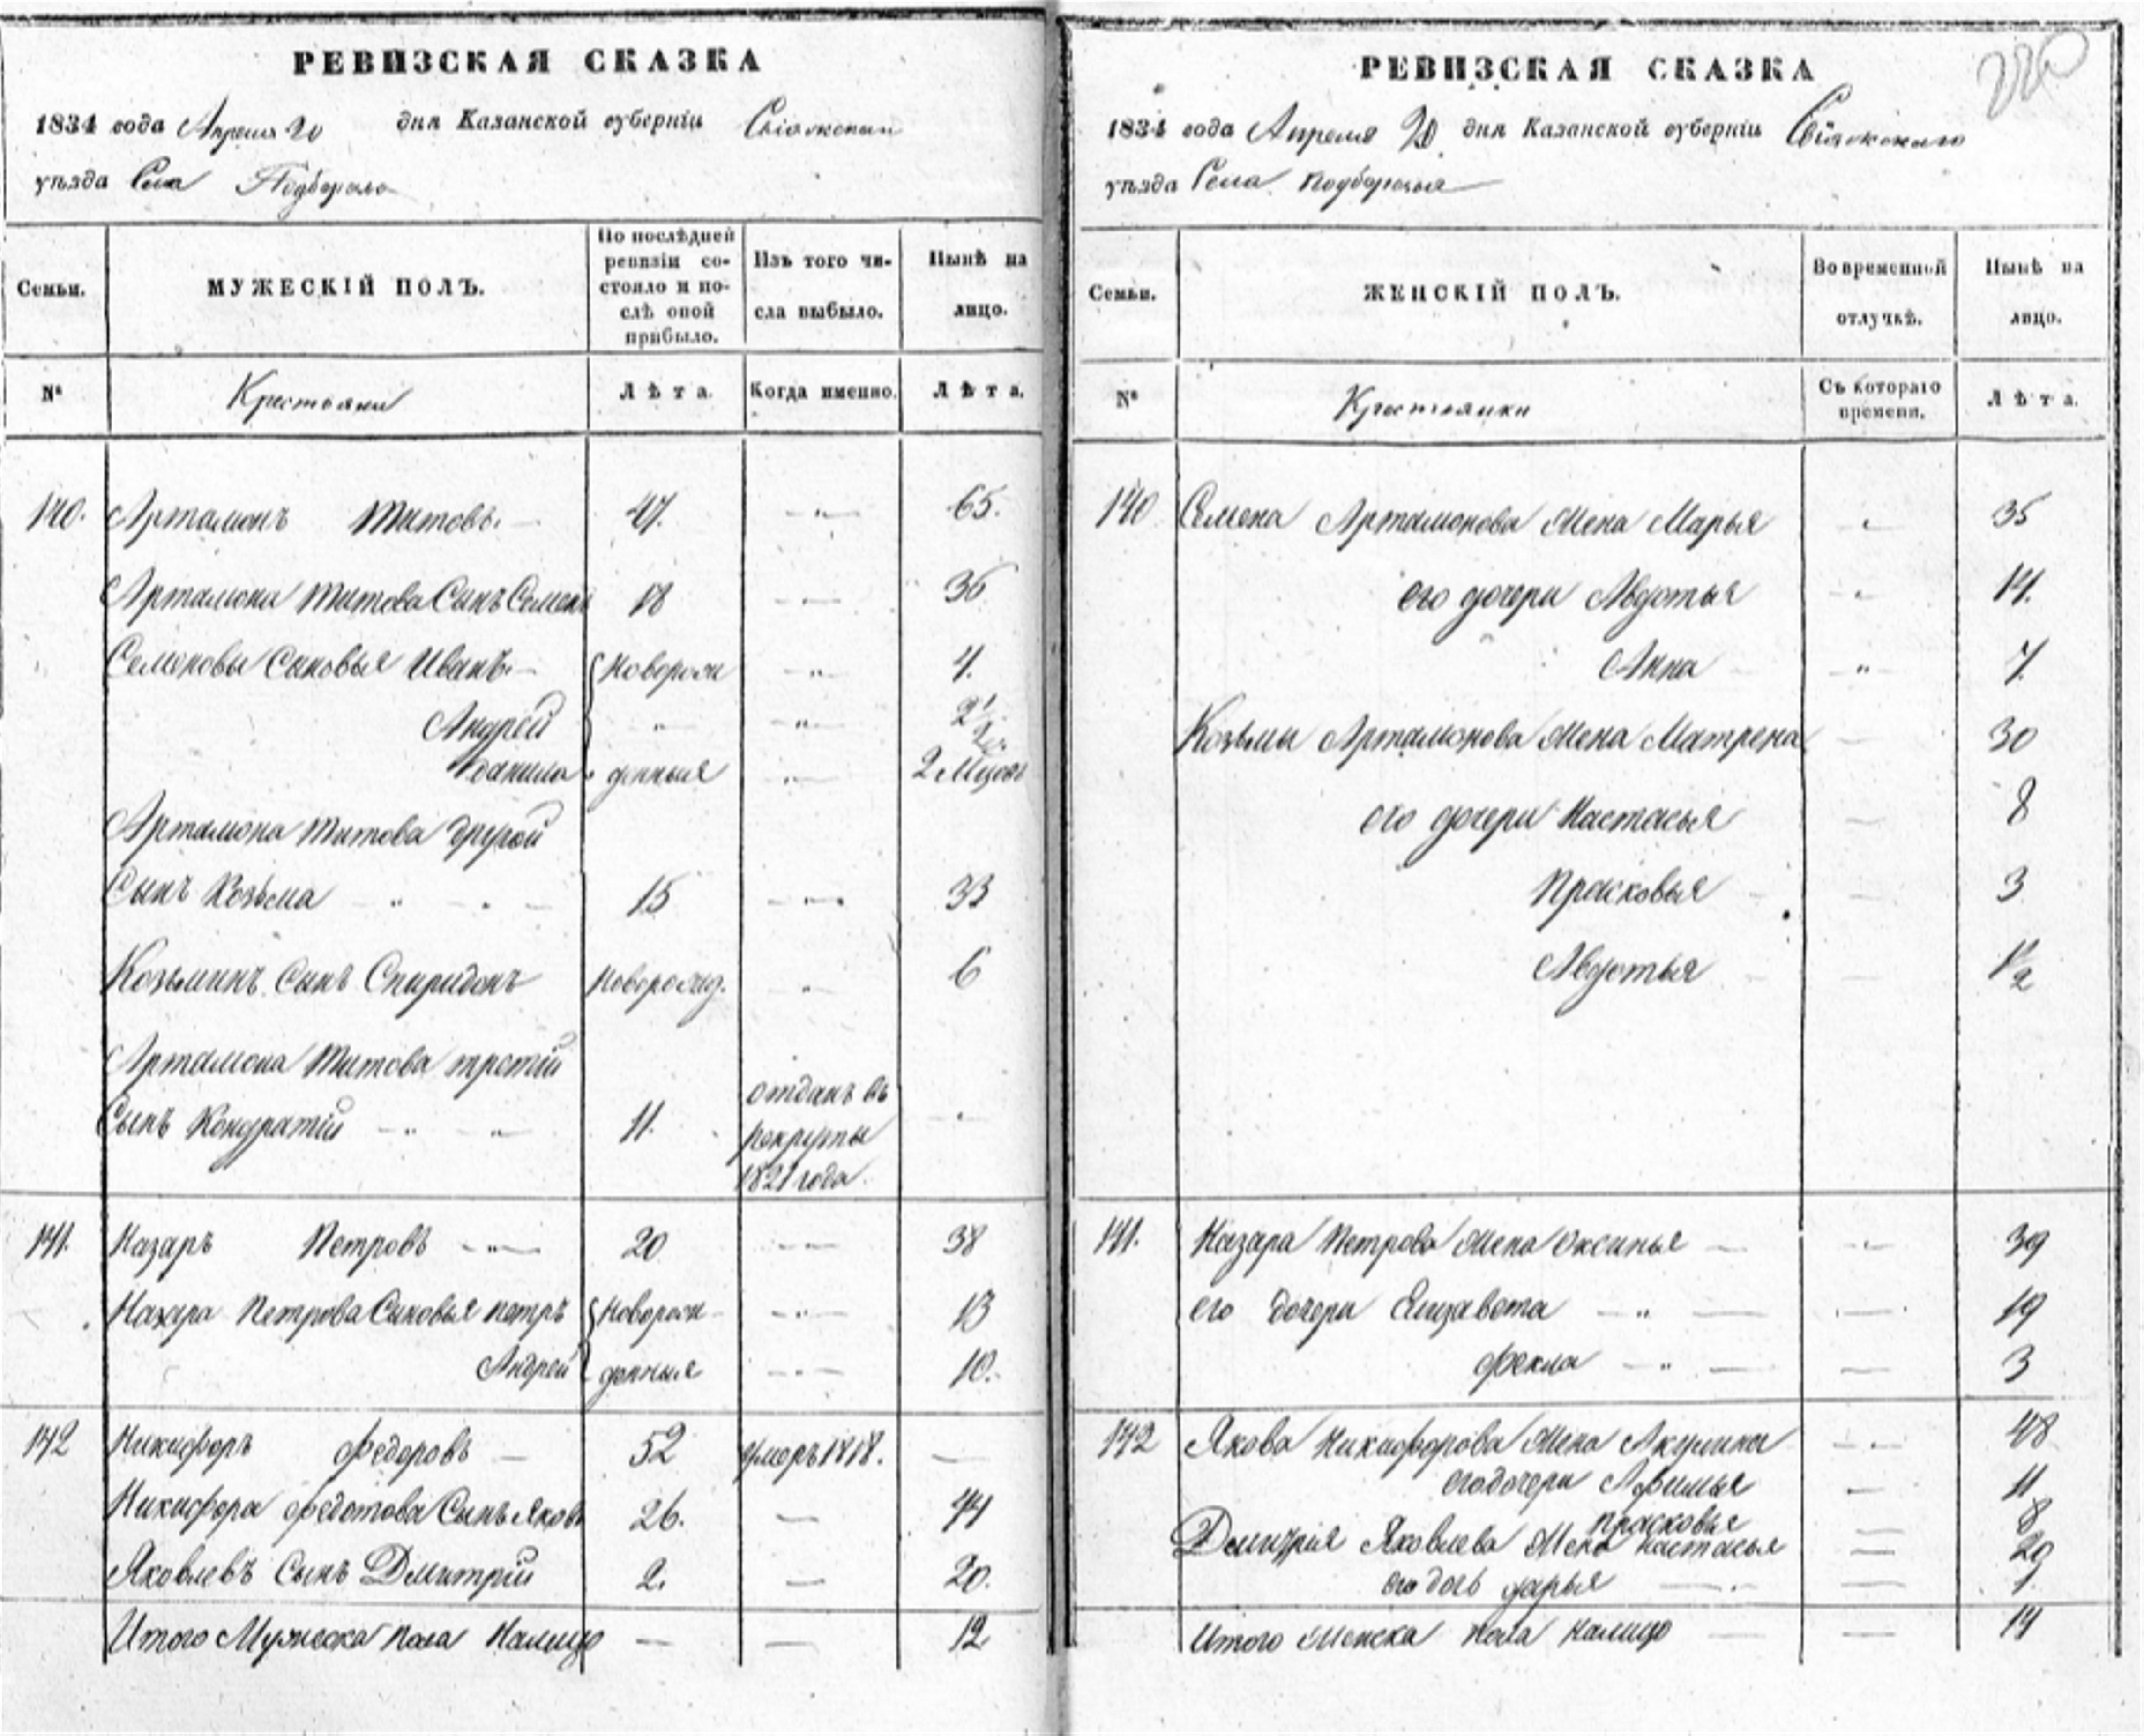 РЕВИЗСКАЯ СКАЗКА
1834 года Апреля 20 дня Казанской губерніи
уѣзда Села
Семьи.
МУЖЕСКІЙ ПОЛЪ.
По послѣдней ревизіи состояло и послѣ оной прибыло.
Изъ того числа выбыло.
Нынѣ на лицо.
№
Крестьяни
Лѣта.
Когда именно.
Лѣта.
140. Артамонъ Титовъ. 47. 65.
Артамона Титова Сынъ Семенъ 18 36
Семеновы Сыновья Иванъ Новорож 4.
Андрей 2 1/2
данила денныя 2 Месяц
Артамона Титова другой
Сынъ Козьма 15 33
Козьминъ Сынъ Спиридонъ Новорожд. 6
Артамона Титова третій
отданъ въ
Сынъ Кондратій 11.
рекруты
1821 года
141. Назаръ Петровъ 20 38
Назара Петрова Сыновья петръ Новорож 13
Андрей денныя 10.
142 Никифоръ Федоровъ 52 умеръ 1818.
Никифора федотова Сынъ Яковъ 26. 44
Яковлевъ Сынъ Дмитрій 2. 20.
Итого Мужеска пола Налицо 12
220
РЕВИЗСКАЯ СКАЗКА
1834 года Апреля 20 дня Казанской губерніи Свіяжскаго
уѣзда Села подберезья
Семьи.
ЖЕНСКІЙ ПОЛЪ.
Во временной отлучкѣ.
Нынѣ на лицо.
№
Крестьянки
Съ котораго времени.
Лѣта.
140 Семена Артамонова Жена Марья 35
его дочери Авдотья 14.
Анна 7.
Козьмы Артамонова Жена Матрена 30
его дочери Настасья 8
Прасковья 3
Авдотья 1/2
141. Назара Петрова Жена Оксинья 39
его дочери Елизавета 19
Фекла 3
142 Якова Никифорова Жена Акулина 48
его дочери Афимья 11
прасковья 8
Дмитрія Яковлева Жена настасья 29
его дочь дарья 1.
Итого Женска пола налицо 14